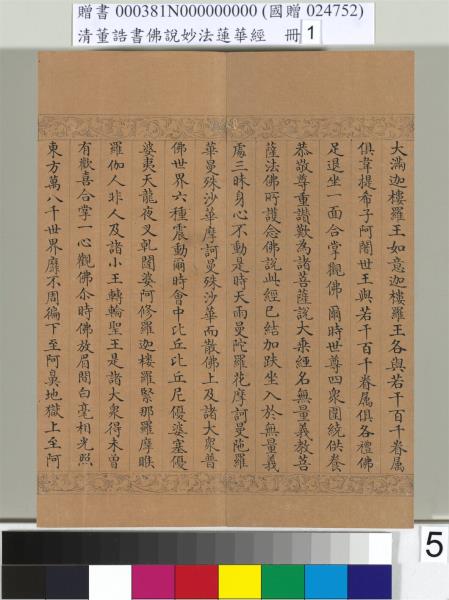 贈書 000381N000000000 (國贈 024752)
清董誥書佛說妙法蓮華經 冊 1
大滿迦樓羅王如意迦樓羅王各與若干百千眷屬
俱韋提希子阿闍世王與若干百千眷屬俱各禮佛
足退坐一面合掌觀佛爾時世尊四衆圍繞供養
恭敬尊重讃歎為諸菩薩說大乗經名無量義教菩
薩法佛所護念佛說此經已結加趺坐入於無量義
處三昧身心不動是時天雨曼陀羅花摩訶曼陁羅
華曼殊沙華摩訶曼殊沙華而散佛上及諸大衆普
佛世界六種震動爾時會中比丘比丘尼優婆塞優
婆夷天龍夜叉乹闥婆阿修羅迦樓羅緊那羅摩睺
羅伽人非人及諸小王轉輪聖王是諸大衆得未曾
有歡喜合掌一心觀佛尒時佛放眉間白亳相光照
東方萬八千世界靡不周徧下至阿鼻地獄上至阿
5